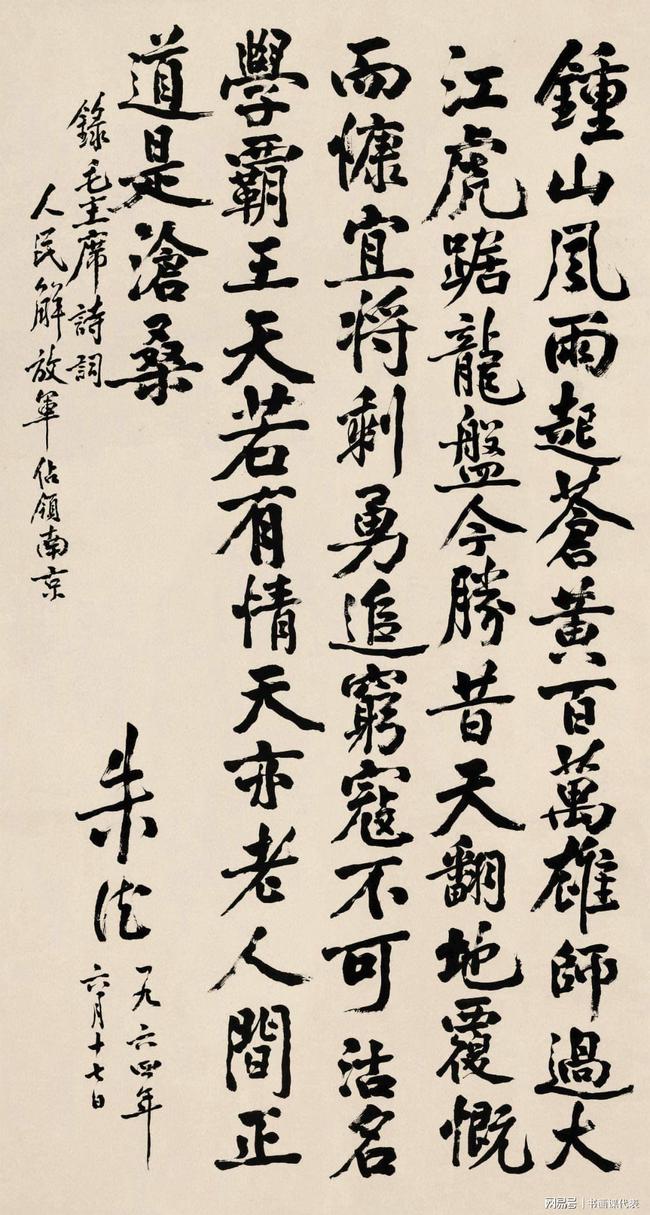 鍾山風雨起蒼黃百萬雄師過大
江虎踞龍盤今勝昔天翻地覆慨
而慷宜將剩勇追窮寇不可沽名
學霸王天若有情天亦老人間正
道是滄桑
錄毛主席詩詞
人民解放軍佔領南京
朱德
一九六四年
六月十七日
网易号 | 书画课代表